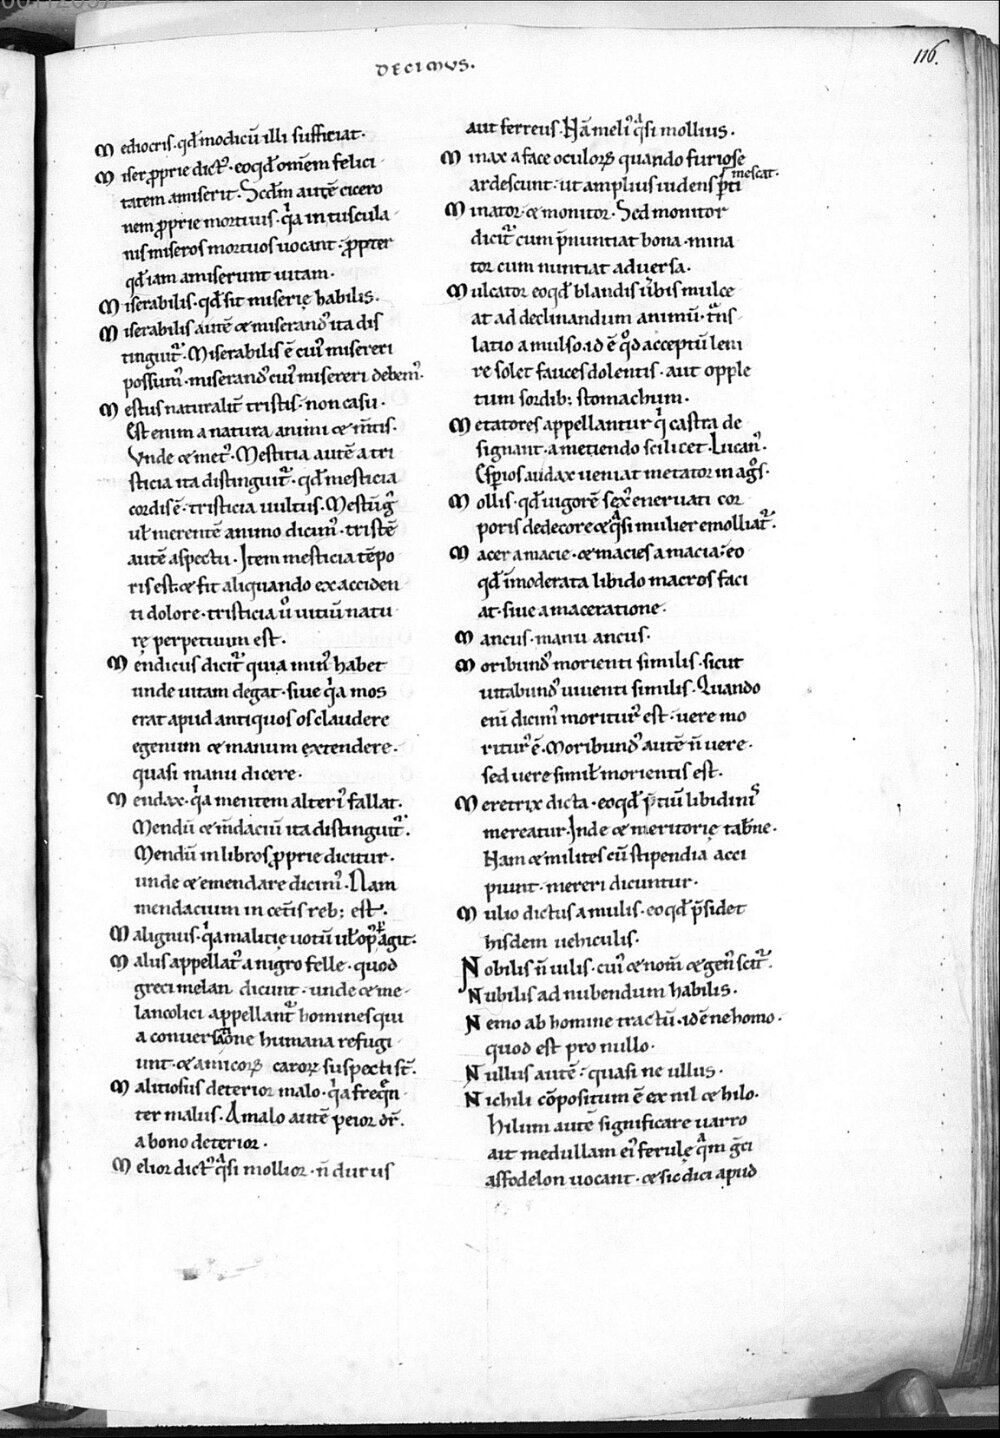 DECIMVS.
116.
Mediocris. qd̄ modicū illi sufficiat.
Miser ꝓprie dictꝰ. eo qd̄ om̄em felici
tatem amiserit. Scd̄m autē cicero
nem ꝓprie mortuus. qͥa in tuscula
nis miseros mortuos uocant. ꝓpter
qd̄ iam amiserunt uitam.
Miserabilis. qd̄ sit miserię habilis.
Miserabilis autē & miserandꝰ ita dis
tinguit᷑. Miserabilis ē cuiꝰ misereri
possumꝰ. miserandꝰ cuiꝰ misereri debemꝰ.
Mestus naturalit̄ tristis. non casu.
Est enim a natura animi & m̄tis.
Vnde & metꝰ. Mestitia autē a tri
sticia ita distinguit᷑. qd̄ mesticia
cordis ē. tristicia uultus. Mestū gͥ
ul̄ merentē animo dicimꝰ. tristē
autē aspectu. Item mesticia tēpo
ris est. & fit aliquando ex acciden
ti dolore. tristicia uͦ uitiū natu
rę perpetuum est.
Mendicus dicit᷑ quia minꝰ habet
unde uitam degat. siue qͥa mos
erat apud antiquos os claudere
egenum & manum extendere.
quasi manu dicere.
Mendax. qͥa mentem alteriꝰ fallat.
Mendū & m̄daciū ita distinguit᷑.
Mendū in libris ꝓprie dicitur.
unde & emendare dicimꝰ. Nam
mendacium in cet̄is reb; est.
Malignus. qͥa malitię uotū ul̄ opꝰ ꝑagit.
Malus appellat᷑ a nigro felle. quod
greci melan dicunt. unde & me
lancolici appellant᷑ homines qui
a conuersatione humana refugi
unt. & amicoꝝ caroꝝ suspecti st̄.
Malitiosus deterior malo. qͥa freqn̄
ter malus. A malo autē peior dr̄.
a bono deterior.
Melior dictꝰ qͣsi mollior. n̄ durus
aut ferreus. Nā meliꝰ qͣsi mollius.
Minax a face oculoꝝ quando furiose
ardescunt. ut amplius uidens ꝑti
mescat.
Minator & monitor. Sed monitor
dicit᷑ cum p̄nuntiat bona. mina
tor cum nuntiat aduersa.
Mulcator eo qd̄ blandis ūbis mulce
at ad declinandum animū. tͣns
latio a mulso. id ē qͦd acceptū leni
re solet fauces dolentis. aut opple
tum sordib; stomachum.
Metatores appellantur qͥ castra de
signant. a metiendo scilicet. Lucanꝰ.
Espios audax ueniat metator in agͦs.
Mollis. qd̄ uigorē sexꝰ eneruati cor
poris dedecore & qͣsi mulier emolliat᷑.
Macer a macie. & macies a macia. eo
qd̄ īmoderata libido macros faci
at. siue a maceratione.
Mancus. manu ancus.
Moribundꝰ morienti similis. sicut
uitabundꝰ uiuenti similis. Quando
eni dicimꝰ moriturꝰ est. uere mo
riturꝰ ē. Moribundꝰ autē n̄ uere.
sed uere simil̄ morientis est.
Meretrix dicta. eo qd̄ p̄tiū libidinis
mercatur. Inde & meritorię tab̄ne.
Nam & milites cū stipendia acci
piunt. mereri dicuntur.
Mulio dictus a mulis. eo qd̄ p̄sidet
hisdem uehiculis.
Nobilis n̄ uilis. cuiꝰ & nom̄ & genꝰ scit᷑.
Nubilis ad nubendum habilis.
Nemo ab homine tractū. id ē ne homo.
quod est pro nullo.
Nullus autē. quasi ne ullus.
Nichili cōpositum ē ex nil & hilo.
hilum autē significare uarro
ait medullam eiꝰ ferulę qͣm gͣci
assodelon uocant. & sic dici apud